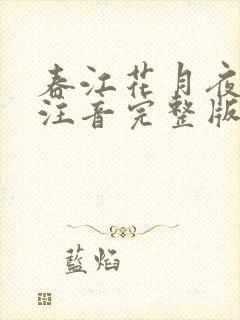 春江花月夜
注音完整版
藍焰